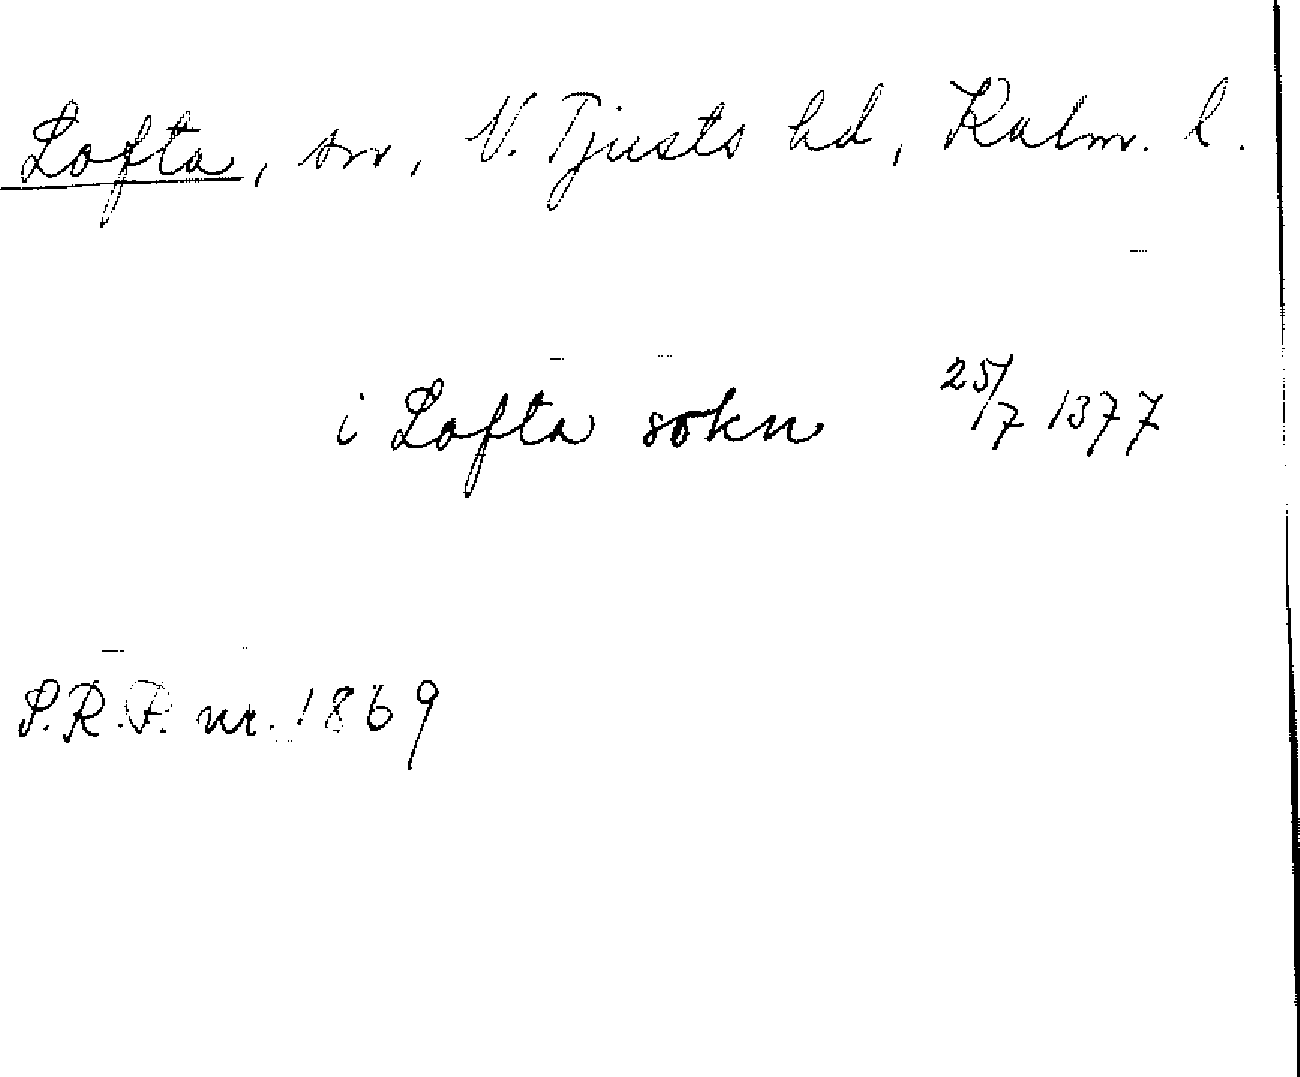 Lofta, sn, V. Tjusts hd, Kalm. l.
i Lofta sokn 25/7 1377
S.R.P. nr. 1869